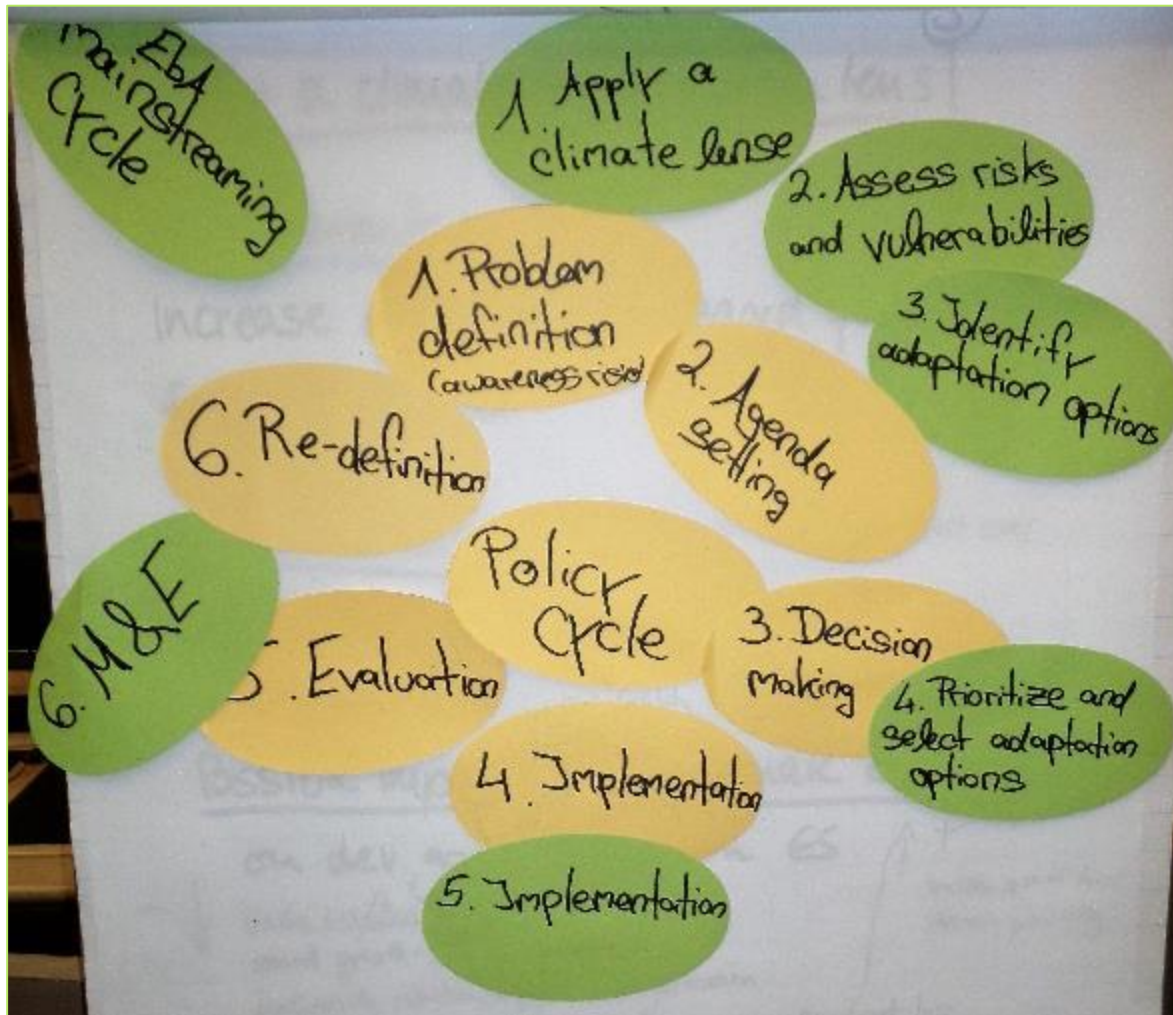 EbA
mainstreaming
Cycle
1. Apply a
climate lense
2. Assess risks
and vulnerabilities
3. Identify
adaptation options
1. Problem
definition
(awareness
2. Agenda
setting
6. Re-definition
Policy
Cycle
3. Decision
making
4. Prioritize and
select adaptation
options
6. M&E
5. Evaluation
4. Implementation
5. Implementation
Increase
ES